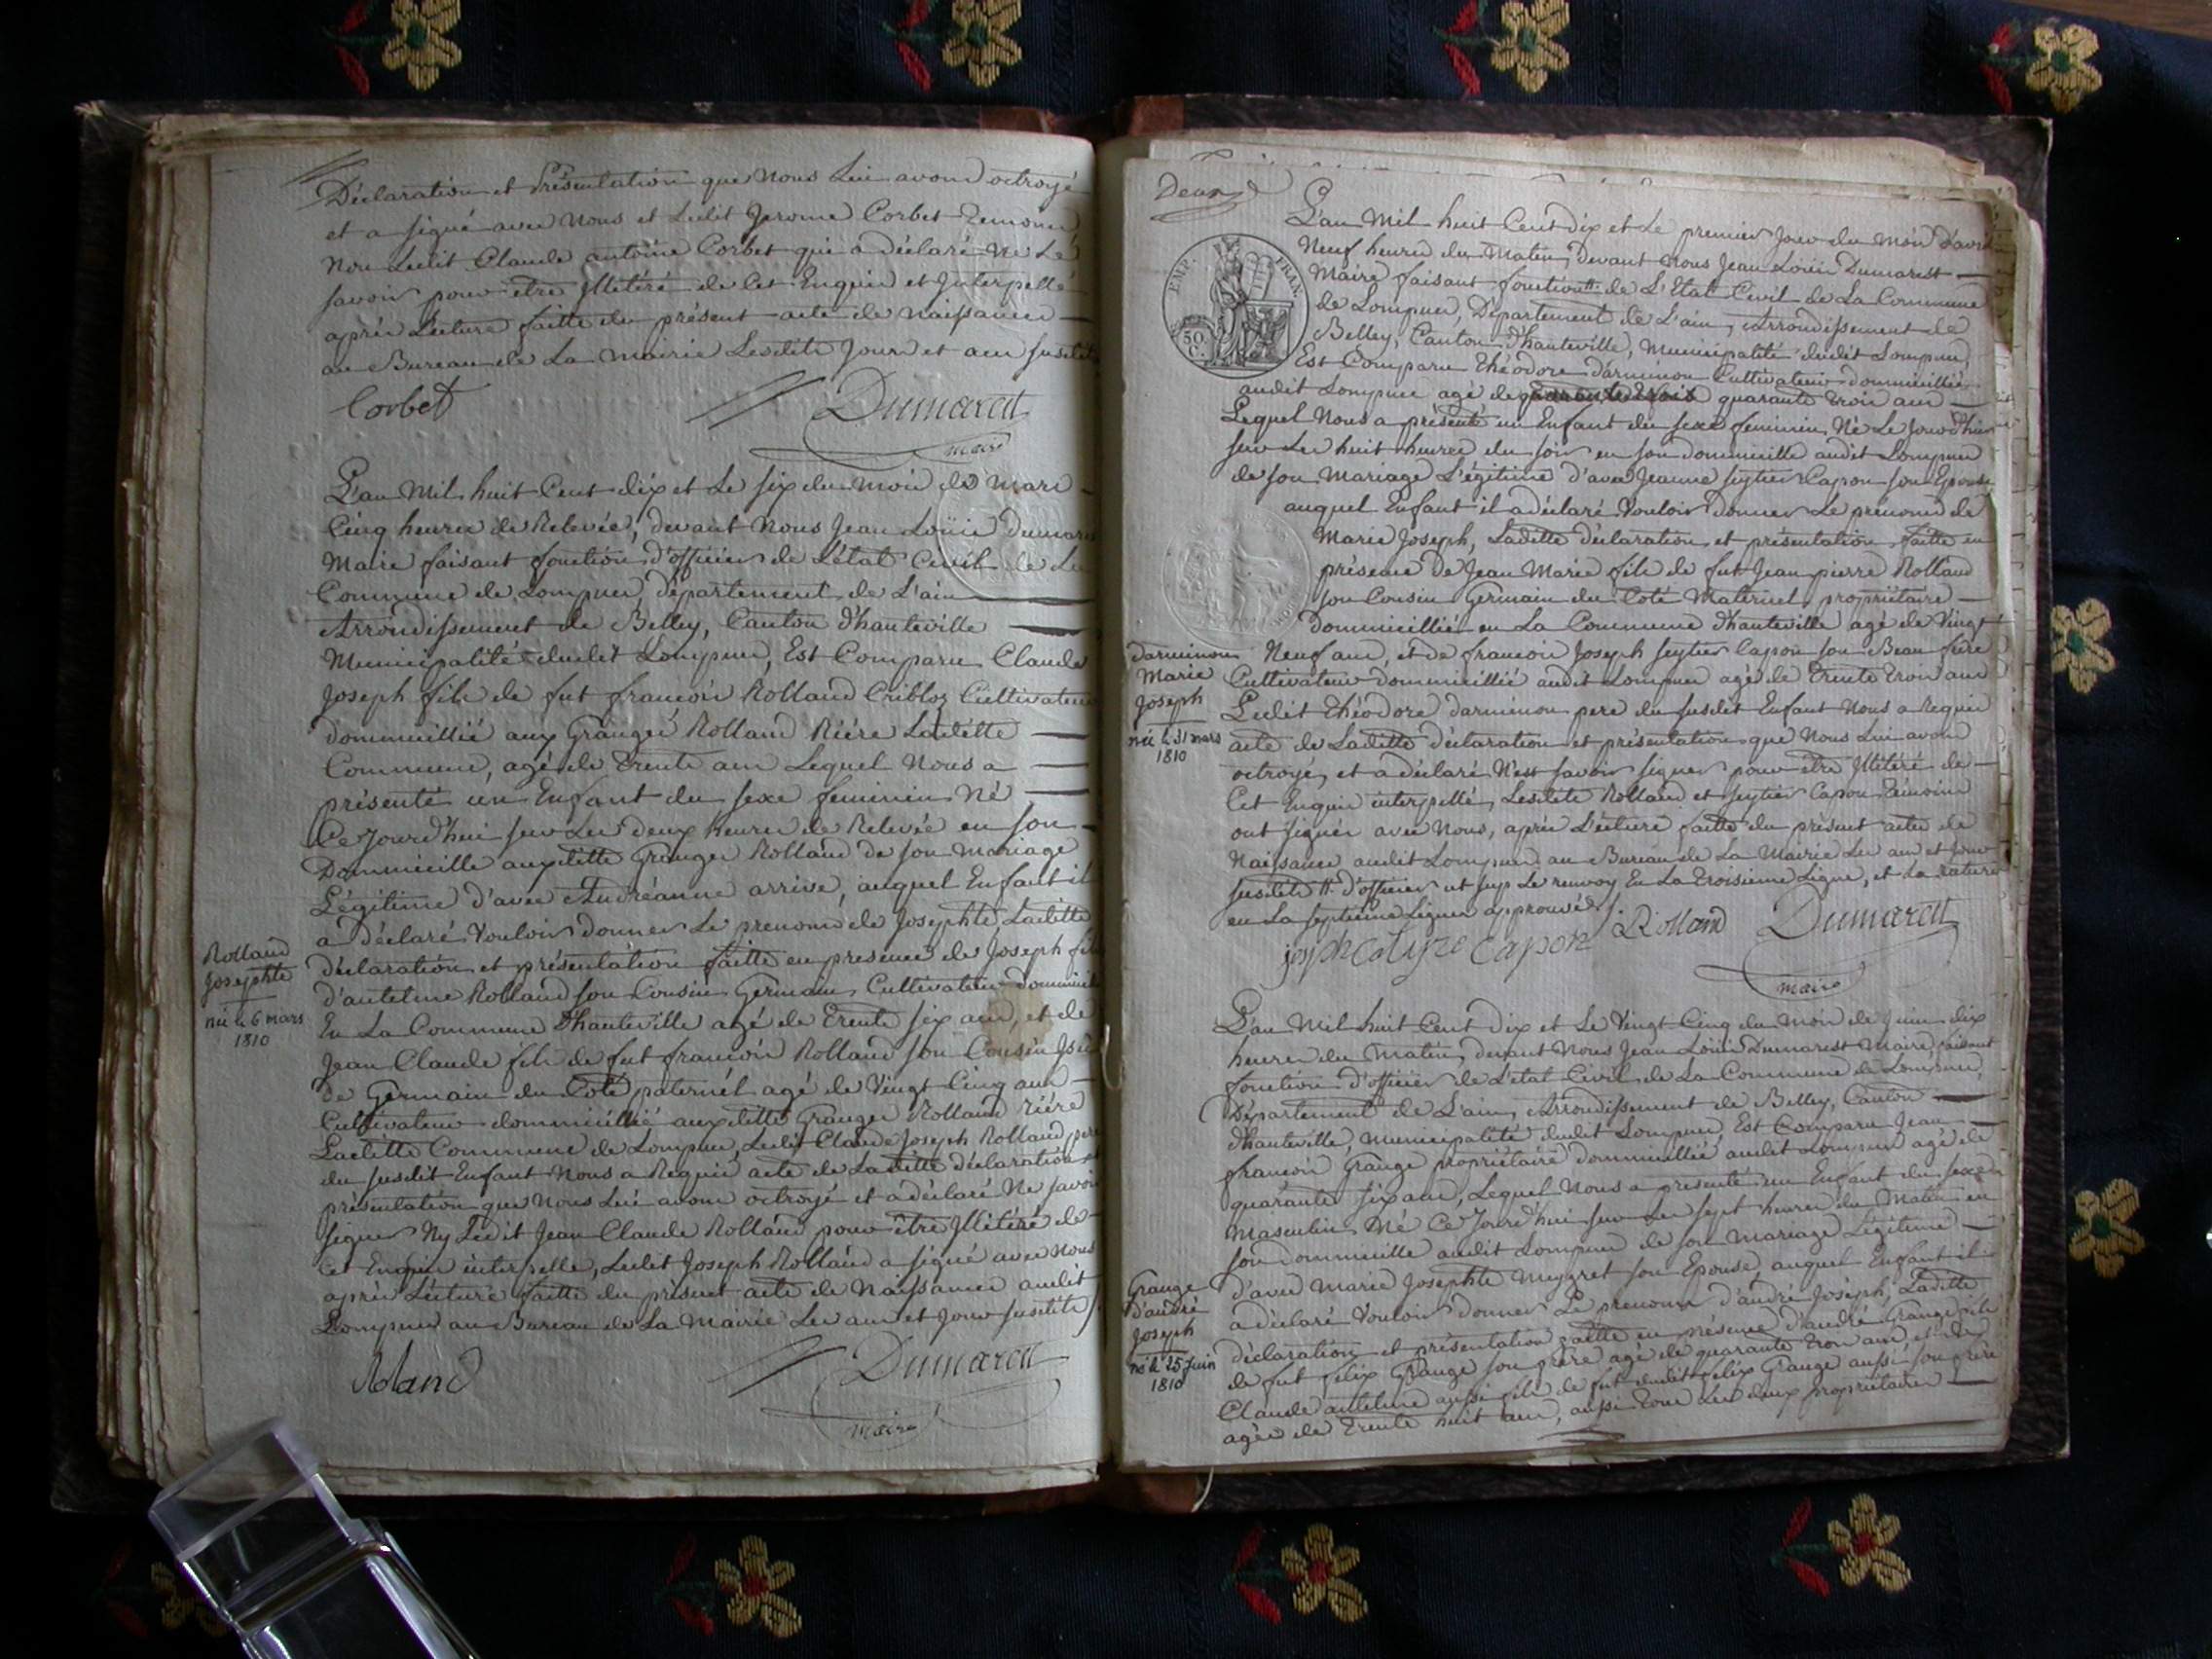 Déclaration et Présentation que Nous Lui avons octroyé
et a signé avec Nous et Ledit Jerome Corbet Temoins
Non Ledit Claude antoine Corbet qui a déclaré Ne Le
savoir pour être Illitéré de Cet Enquis et Interpellé
après Lecture faitte du présent acte de Naissance
au Bureau de La Mairie Lesdits Jours et an susdits
Corbet
Dumarest
maire
L'an Mil huit Cent dix et Le six du mois de Mars
Cinq heures de Relevée, devant Nous Jean Loüis Dumarest
Maire faisant fonction d'officier de L'état Civil de La
Commune de Lompnes, département de L'ain
Arrondissement de Belley, Canton d'hauteville
Municipalité dudit Lompnes, Est Comparu Claude
Joseph fils de fut francois Rolland Cribloz Cultivateur
dommicillié aux Granges Rolland Rière Laditte
Commune, agé de Trente ans Lequel Nous a
présenté un Enfant du sexe feminin Né
Ce Jourd'hui sur Les deux heures de Relevée en son
Dommicille auxdittes Granges Rolland de son Mariage
Légitime d'avec Andréanne arrive, auquel Enfant il
a déclaré Vouloir donner Le prenom de Josephte, Laditte
déclaration et présentation faitte en presence de Joseph fils
d'antelme Rolland son Cousin Germain, Cultivateur dommicilié
En La Commune D'hauteville agé de Trente six ans, et de
Jean Claude fils de fut francois Rolland son Cousin Issu
de Germain du Coté paternél agé de Vingt Cinq ans
Cultivateur dommicillié auxdittes Granges Rolland rière
Laditte Commune de Lompnes, Ledit Claude Joseph Rolland pere
du susdit Enfant Nous a Requis acte de Laditte déclaration et
présentation que Nous Lui avons octroyé et a déclaré Ne savoir
signer Ny Ledit Jean Claude Rolland pour être Illitéré de
Cet Enquis interpellé, Ledit Joseph Rolland a signé avec Nous
après Lecture faitte du présent acte de Naissance audit
Lompnes au Bureau de La Mairie Les an et Jour susdits
Roland
Dumarest
maire
Rolland
Josephte
née le 6 mars
1810
Deux
L'an Mil huit Cent Dix et Le premier Jour du Mois d'avril
Neuf heures du Matin, Devant Nous Jean Loüis Dumarest
Maire faisant fonction de L'Etat Civil de La Commune
de Lompnes, Département de L'ain, Arrondissement de
Belley, Canton d'hauteville, Municipalité dudit Lompnes
EMP. FRAN.
50 C.
Est Comparu Théodore Darminon Cultivateur dommicillié
audit Lompnes agé de quarante trois ans
Lequel Nous a présenté un Enfant du sexe feminin Né Le Jour d'hier
sur Les huit heures du soir en son dommicille audit Lompnes
de son Mariage Légitime d'avec Jeanne seytier Capon son Epouse
auquel Enfant il a déclaré Vouloir Donner Le prenom de
Marie Joseph, Laditte déclaration et présentation faitte en
présence de Jean Marie fils de fut Jean pierre Rolland
son Cousin Germain du Coté Maternel, propriétaire
Dommicillié en La Commune d'hauteville agé de Vingt
Neuf ans, et de francois Joseph seytier Capon son Beau frere
Cultivateur dommicillié audit Lompnes agé de Trente Trois ans
Ledit Théodore darminon pere du susdit Enfant Nous a Requis
acte de Laditte déclaration et présentation que Nous Lui avons
octroyé, et a déclaré N'est savoir signer pour être Illitéré de
Cet Enquis interpellé, Lesdits Rolland et seytier Capon Témoins
ont signés avec Nous, après Lecture faitte du présent acte de
Naissance audit Lompnes au Bureau de La Mairie Les an et Jour
susdits d'officier et sup Le renvoy En La troisieme Ligne, et La rature
en La septieme Ligne approuvés
Rolland
Dumarest
maire
darminon
Marie
Joseph
née le 31 mars
1810
L'an Mil huit Cent Dix et Le Vingt Cinq du Mois de Juin dix
heures du Matin, devant Nous Jean Loüis Dumarest Maire faisant
fonction d'officier de L'etat Civil de La Commune de Lompnes,
Département de L'ain, Arrondissement de Belley, Canton
d'hauteville, Municipalité dudit Lompnes Est Comparu Jean
francois Grange propriétaire dommicillié audit Lompnes agé de
quarante six ans, Lequel Nous a présenté un Enfant du sexe
Masculin Né Ce Jourd'hui sur Les sept heures du Matin en
son dommicille audit Lompnes de son Mariage Légitime
d'avec Marie Josephte Meygret son Epouse, auquel Enfant il
a déclaré Vouloir donner Le prenom d'andré Joseph, Laditte
déclaration et présentation faitte en présence d'andré Grange fils
de fut felix Grange son frère agé de quarante Trois ans et de
Claude antelme aussi fils de fut dudit felix Grange aussi son frère
agés de Trente huit ans, aussi Tous Les deux propriétaires
Grange
d'andré
Joseph
né le 25 Juin
1810